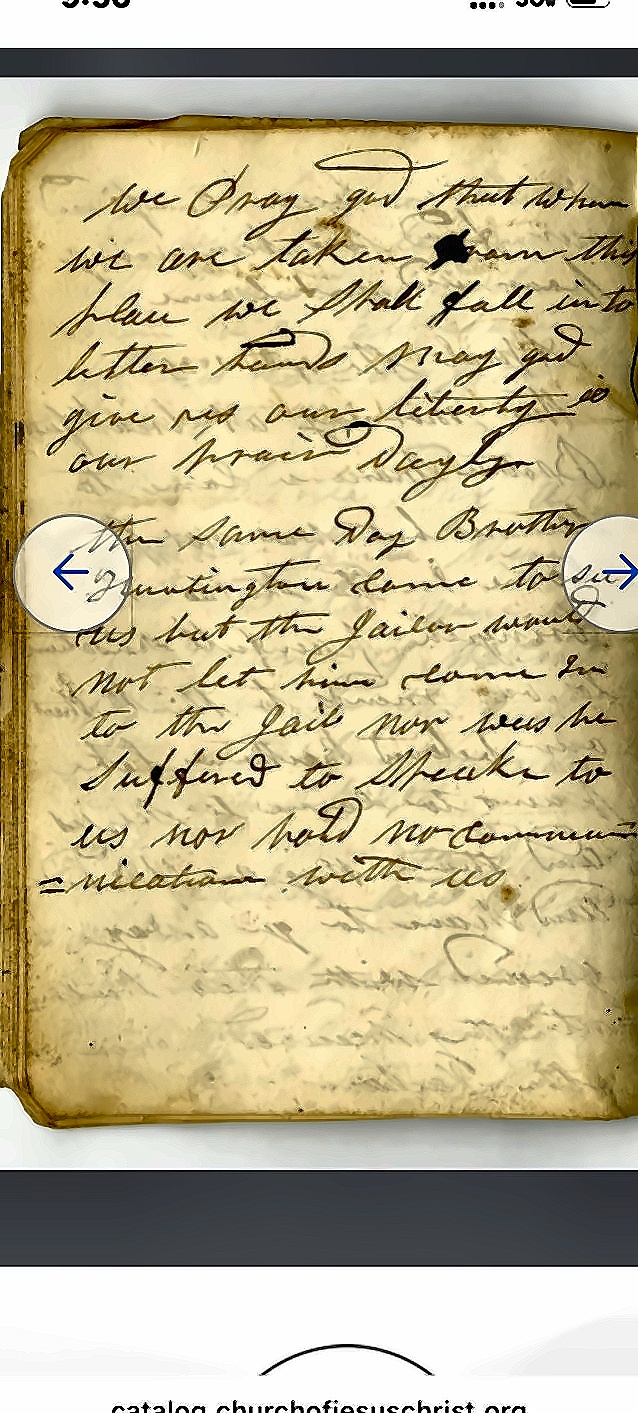 we Pray god that when
we are taken from this
place we shall fall into
better hands may god
give us our liberty is
our prair Dayly
the same Day Brother
Huntington came to see
us but the Jailor would
not let him come In
to the Jail nor was he
Suffered to Speake to
us nor hold no commun=
=nication with us
catalog.churchofjesuschrist.org